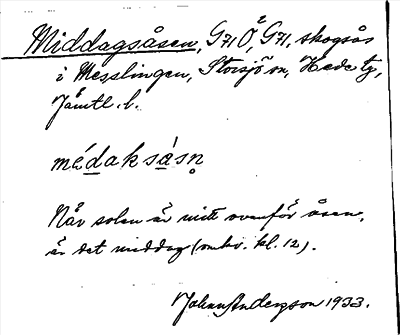 Middagsåsen, G71Ö, G71, skogsås
i Messlingen, Storsjö sn, Hede tg,
Jämtl. l.
médaksásn̥
När solen är mitt ovanför åsen,
är det middag (omkr. kl. 12).
Johan Anderson 1933.